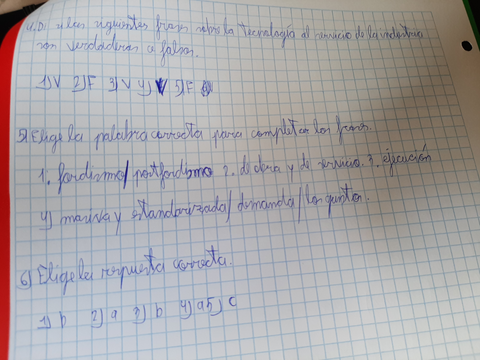 4.Di si las siguientes frases sobre la Tecnología al servicio de la industria
son verdaderas o falsas.
1) V 2) F 3) V 4) V 5) F
5) Elige la palabra correcta para completar las frases.
1. fordismo/postfordismo 2. de obra y de servicio. 3. ejecución
4) masiva y estandarizada/demanda/los gustos.
6) Elige la respuesta correcta.
1) b 2) a 3) b 4) a 5) c